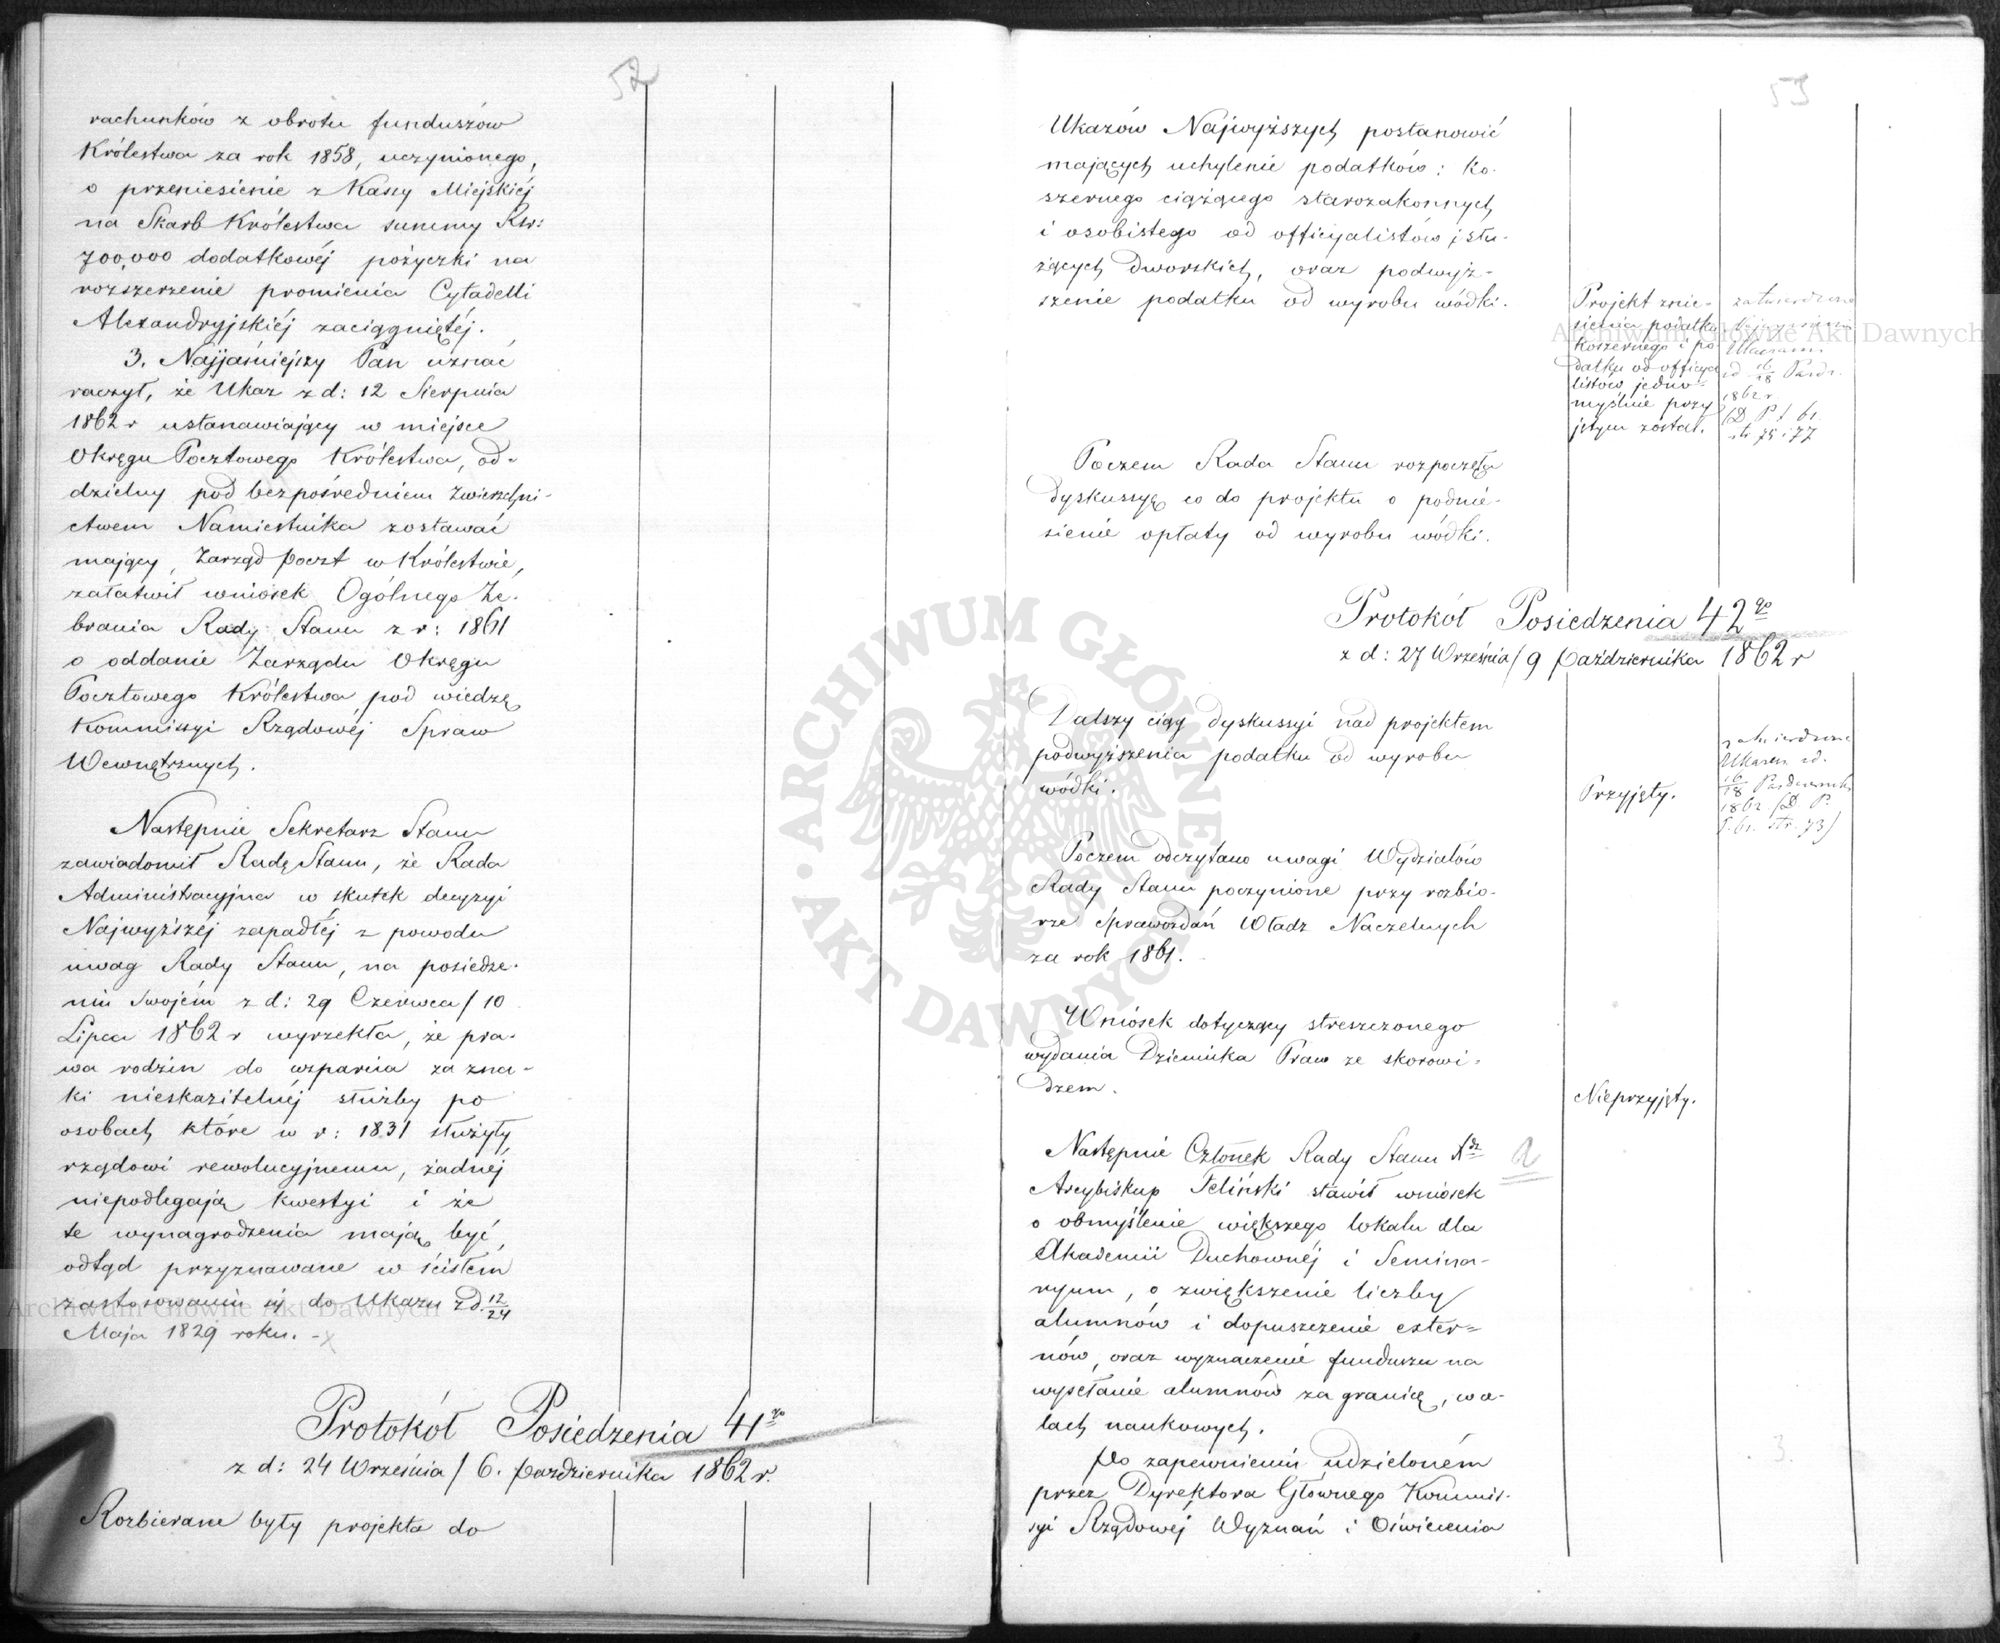 52
rachunków z obrotu funduszów
Królestwa za rok 1858, uczynionego,
o przeniesienie z Kassy Miejskiéj
na Skarb Królestwa summy Rsr:
700,000 dodatkowéj pożyczki na
rozszerzenie promienia Cytadelli
Alexandryjskiéj zaciągniętéj.
3. Najjaśniejszy Pan uznać
raczył, że Ukaz z d: 12 Sierpnia
1862 r ustanawiający w miejsce
Okręgu Pocztowego Królestwa, od-
dzielny pod bezpośredniem zwierzchni-
ctwem Namiestnika zostawać
mający, Zarząd poczt w Królestwie,
załatwił wniosek Ogólnego Ze-
brania Rady Stanu z r: 1861
o oddanie Zarządu Okręgu
Pocztowego Królestwa pod wiedzę
Kommissyi Rządowéj Spraw
Wewnętrznych.
Następnie Sekretarz Stanu
zawiadomił Radę Stanu, że Rada
Administracyjna w skutek decyzyi
Najwyższéj zapadłéj z powodu
uwag Rady Stanu, na posiedze-
niu swojém z d: 29 Czerwca / 10
Lipca 1862 r wyrzekła, że pra-
wa rodzin do wsparcia za zna-
ki nieskazitelnéj służby po
osobach które w r: 1831 służyły
rządowi rewolucyjnemu, żadnéj
niepodlegają kwestyi i że
te wynagrodzenia mają być
odtąd przyznawane w ścisłem
zastosowaniu się do Ukazu z d. 12/24
Maja 1829 roku. -x
Protokół Posiedzenia 41go
z d: 24 Września / 6. Października 1862 r.
Rozbierane były projekta do
53
Ukazów Najwyższych postanowić
mających uchylenie podatków: ko-
szernego ciążącego starozakonnych
i osobistego od officyalistów i słu-
żących dworskich, oraz podwyż-
szenie podatku od wyrobu wódki.
Projekt znie-
sienia podatku
koszernego i po
datku od officya
listów jedno-
myślnie przy
jętym został.
zatwierdzone
Najwyższemi
Ukazami
zd 16/18 Paźdz.
1862 r
(D P t 61.
str 75 i 77
Poczem Rada Stanu rozpoczęła
dyskussyę co do projektu o podnie-
sienie opłaty od wyrobu wódki.
Protokół Posiedzenia 42go
z d: 27 Września / 9 Października 1862 r
Dalszy ciąg dyskussyi nad projektem
podwyższenia podatku od wyrobu
wódki.
Przyjęty.
zatwierdzone
Ukazem zd.
16/18 Października
1862 (D. P.
t. 61. str. 73)
Poczem odczytano uwagi Wydziałów
Rady Stanu poczynione przy rozbio-
rze sprawozdań Władz Naczelnych
za rok 1861.
Wniosek dotyczący streszczonego
wydania Dziennika Praw ze skorowi-
dzem.
Nieprzyjęty.
Następnie Członek Rady Stanu Xdz
Arcybiskup Feliński stawił wniosek
o obmyślenie większego lokalu dla
Akademii Duchownéj i Semina-
ryum, o zwiększenie liczby
alumnów i dopuszczenie exter-
nów, oraz wyznaczenie funduszu na
wysełanie alumnów za granicę, w ce-
lach naukowych.
Po zapewnieniu udzieloném
przez Dyrektora Głównego Kommis-
syi Rządowéj Wyznań i Oświecenia
3.
ARCHIWUM GŁÓWNE AKT DAWNYCH
Archiwum Główne Akt Dawnych
Archiwum Główne Akt Dawnych